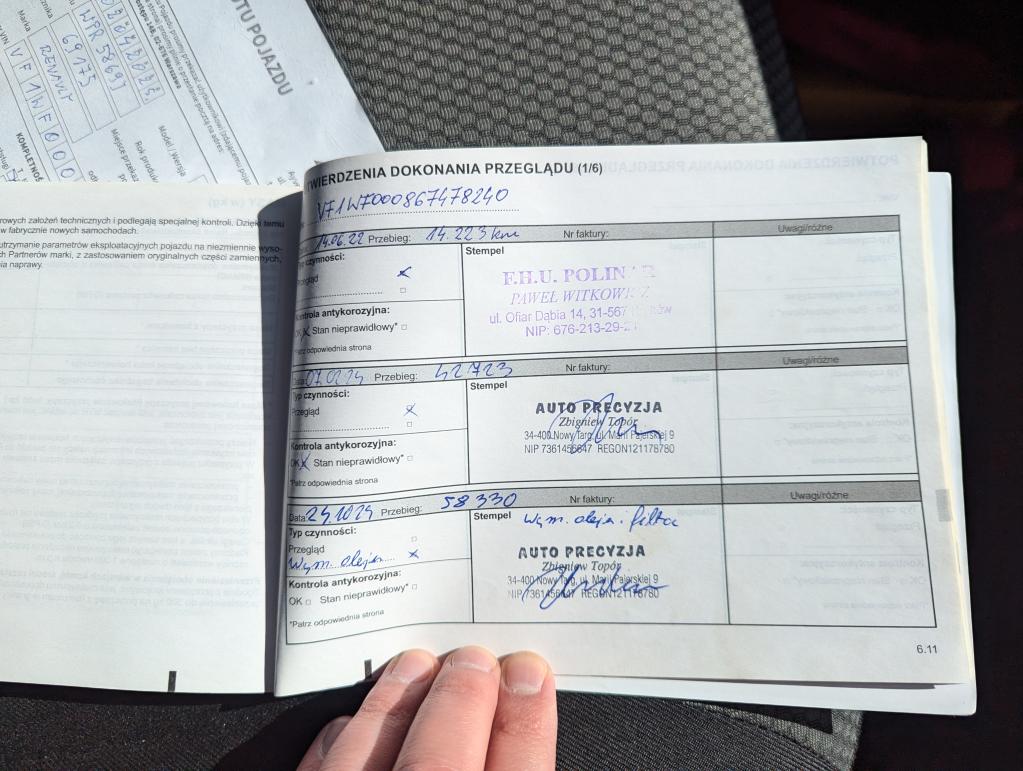 OTU POJAZDU
02-676 Warszawa
WPR 5869J
69173
Marka
RENAULT
VIN
VF1WF000
Model / Wersja
Rok produk
Miejsce przeka
KOMPLETNOŚ
rowych założeń technicznych i podlegają specjalnej kontroli. Dzięki temu
w fabrycznie nowych samochodach.
utrzymanie parametrów eksploatacyjnych pojazdu na niezmiennie wyso-
ch Partnerów marki, z zastosowaniem oryginalnych części zamiennych,
nia naprawy.
TWIERDZENIA DOKONANIA PRZEGLĄDU (1/6)
VF1WF000867478240
14.06.22 Przebieg: 14.223km Nr faktury: Uwagi/różne
czynności:
Przegląd x
Kontrola antykorozyjna:
OK x Stan nieprawidłowy*
*Patrz odpowiednia strona
Stempel
F.H.U. POLIN
PAWEŁ WITKOW
ul. Ofiar Dąbia 14, 31-567
NIP: 676-213-29-
07.02.24 Przebieg: 42723 Nr faktury: Uwagi/różne
Typ czynności:
Przegląd x
Kontrola antykorozyjna:
OK x Stan nieprawidłowy*
*Patrz odpowiednia strona
Stempel
AUTO PRECYZJA
Zbigniew Topór
34-400 Nowy Targ, ul. Marii Pajerskiej 9
NIP 7361456647 REGON121178780
Data: 24.10.24 Przebieg: 58330 Nr faktury: Uwagi/różne
Typ czynności:
Przegląd
Wym. oleju x
Kontrola antykorozyjna:
OK Stan nieprawidłowy*
*Patrz odpowiednia strona
Stempel Wym. oleju i filtra
AUTO PRECYZJA
Zbigniew Topór
34-400 Nowy Targ, ul. Marii Pajerskiej 9
NIP 7361456647 REGON121178780
6.11